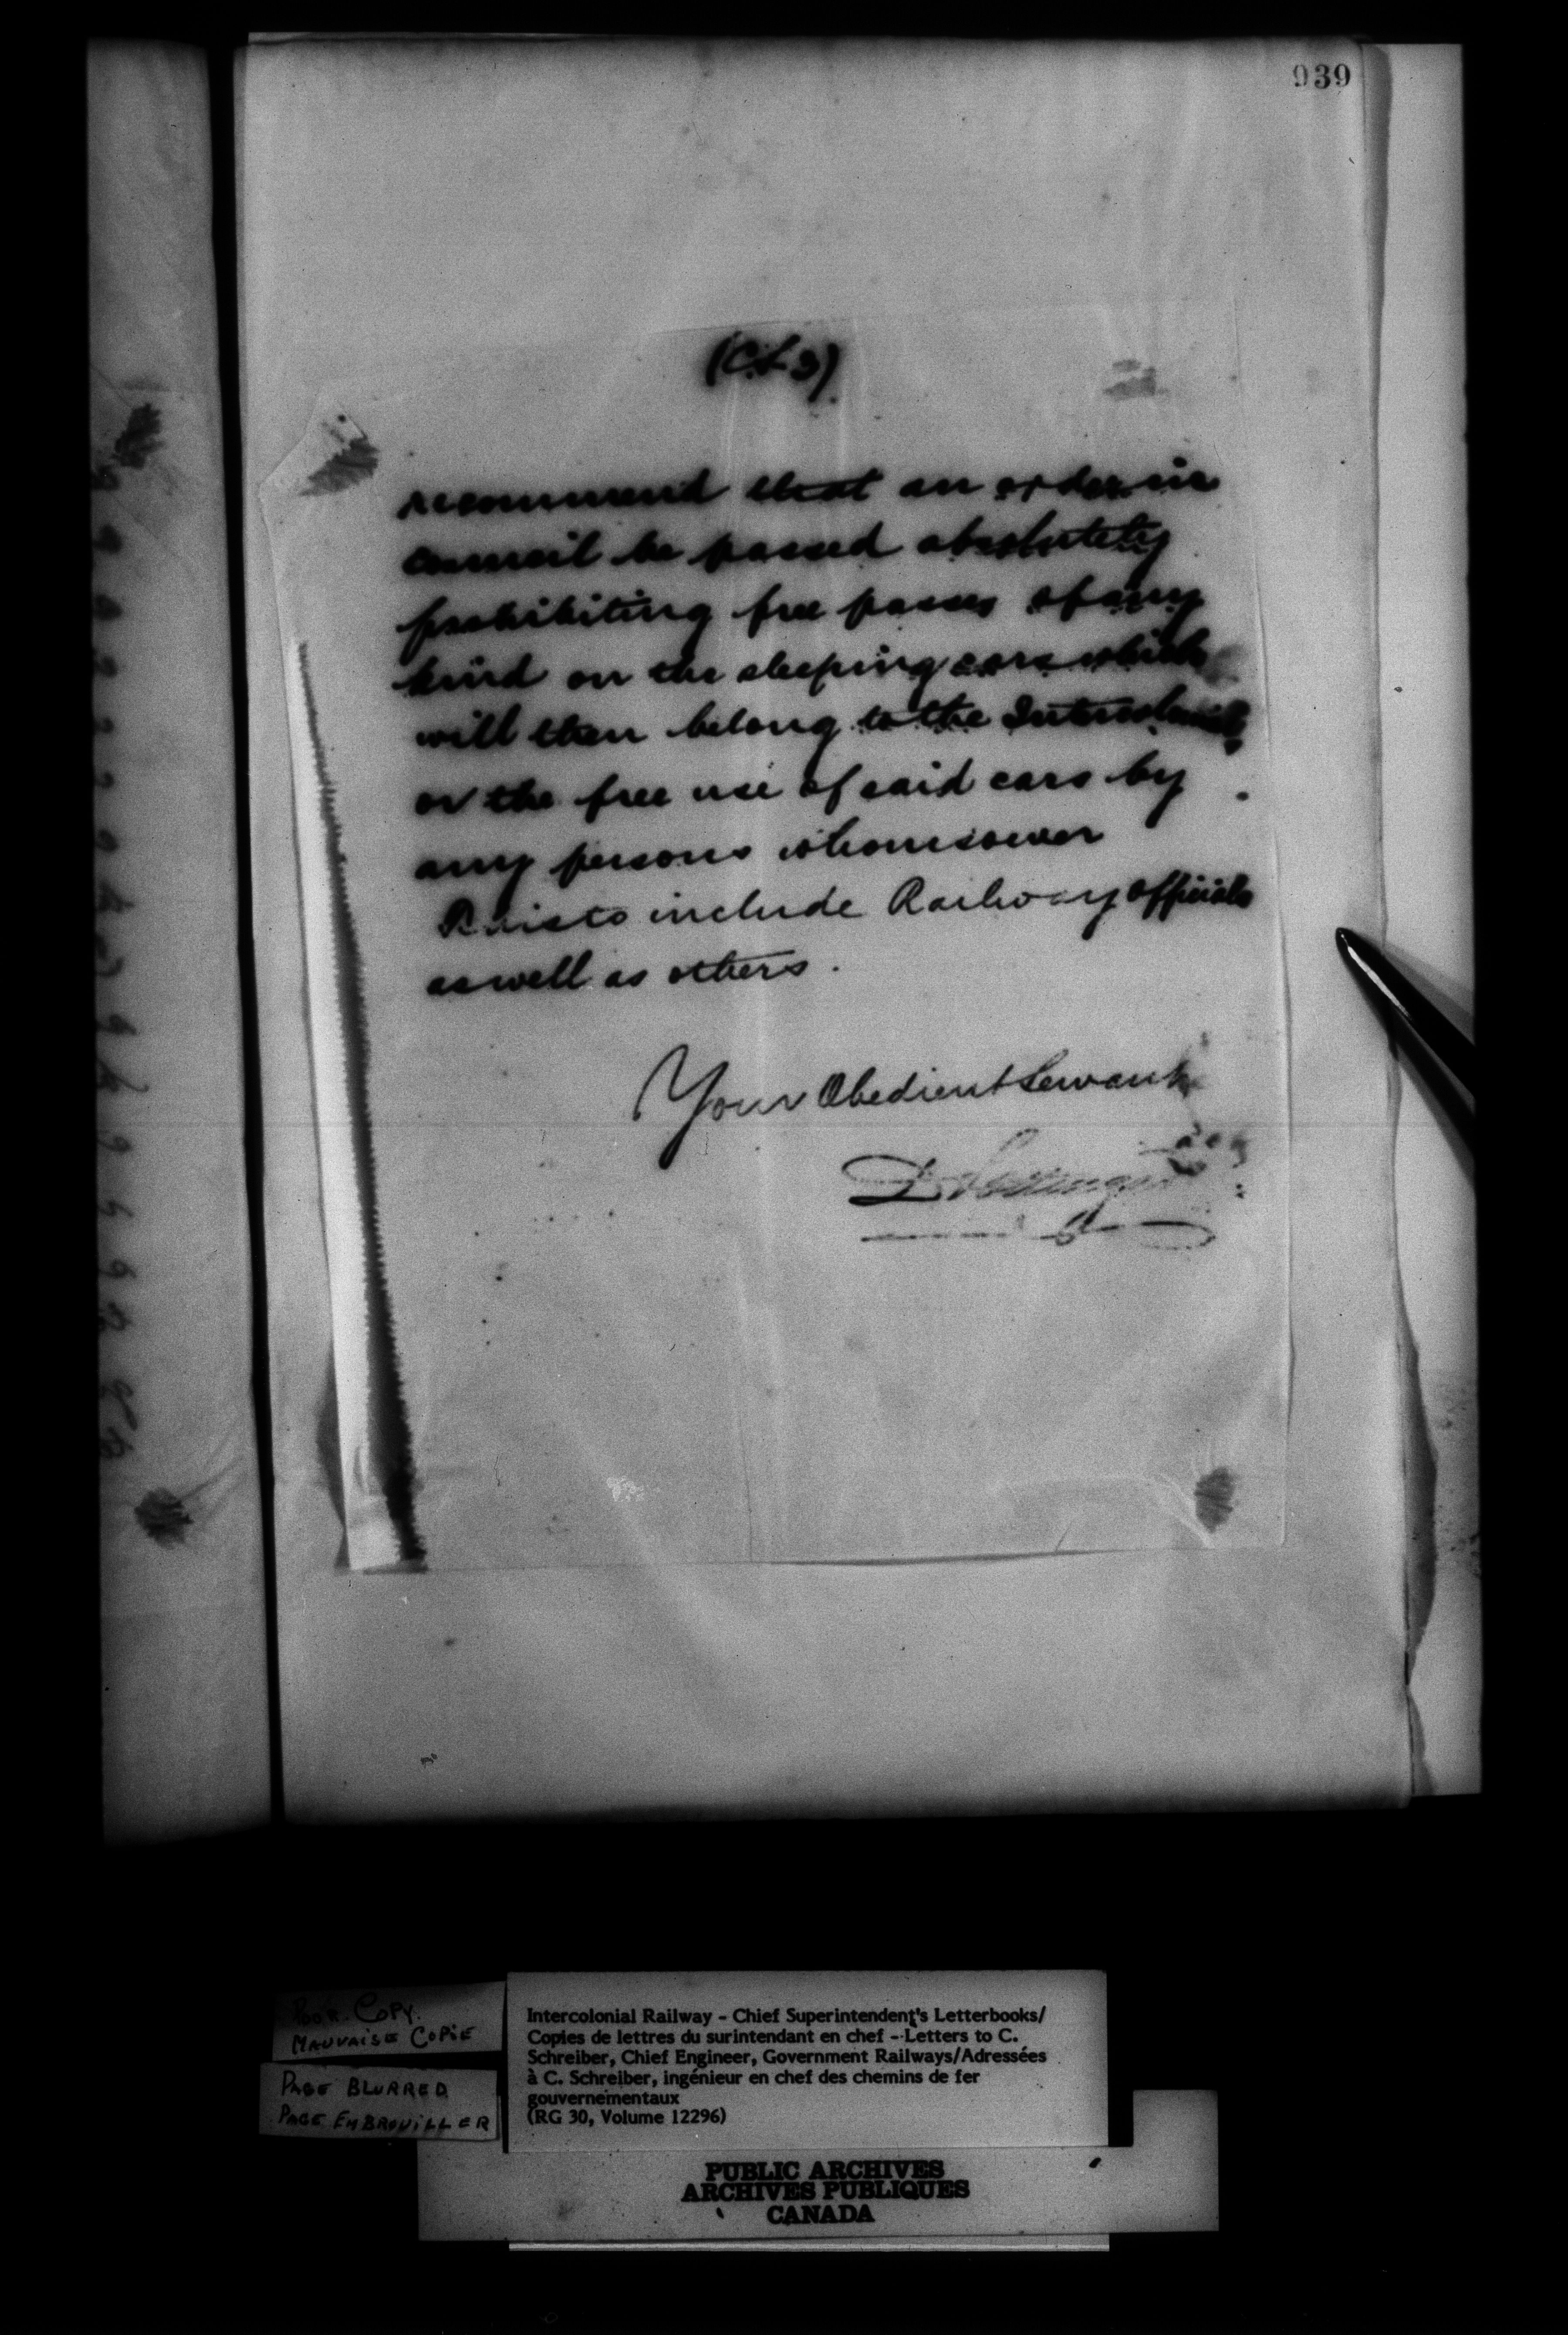 939
(C.S. 3)
recommend that an order in
council be passed absolutely
prohibiting free passes of any
kind on the sleeping cars which
will then belong to the Intercolonial
or the free use of said cars by
any persons whomsoever
to include Railway officials
as well as others.
Your Obedient Servant
D Pottinger
Poor Copy.
Mauvaise Copie
Page Blurred
Page Embrouiller
Intercolonial Railway - Chief Superintendent's Letterbooks/
Copies de lettres du surintendant en chef - Letters to C.
Schreiber, Chief Engineer, Government Railways/Adressées
à C. Schreiber, ingénieur en chef des chemins de fer
gouvernementaux
(RG 30, Volume 12296)
PUBLIC ARCHIVES
ARCHIVES PUBLIQUES
CANADA